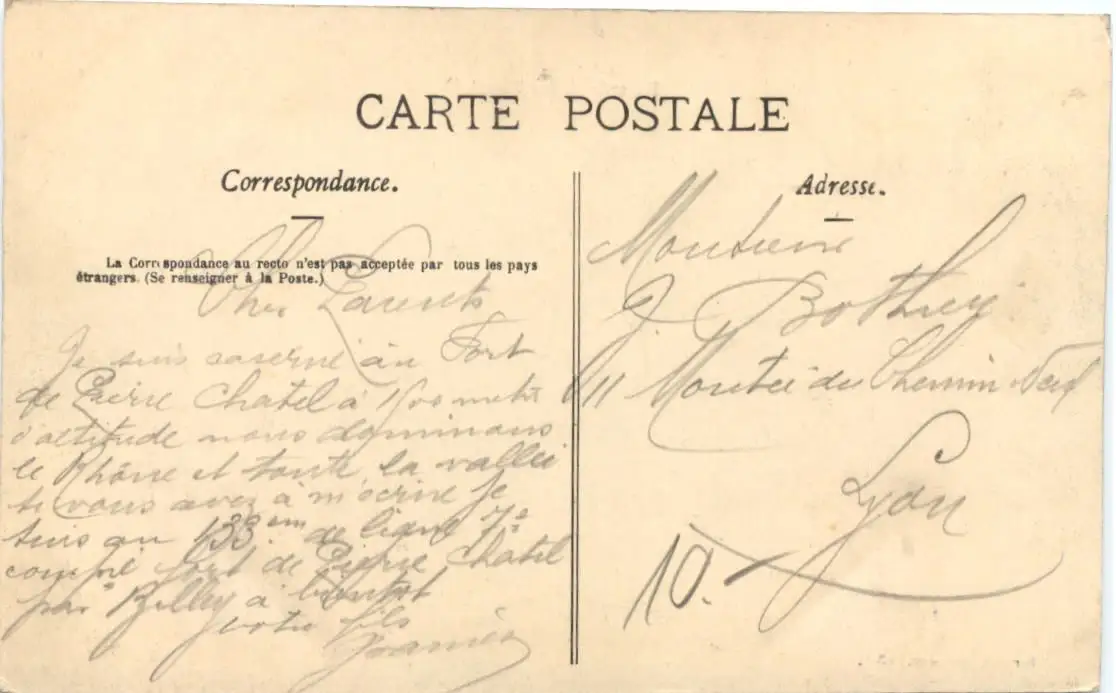 CARTE POSTALE
Correspondance.
La Correspondance au recto n'est pas acceptée par tous les pays
étrangers. (Se renseigner à la Poste.)
Cher Parents
Je suis caserné au Fort
de Pierre Chatel à metre
d'altitude nous dominons
le Rhône et toute la vallée
si vous avez à m'écrire je
suis au 133 em de ligne 7e
compnie fort de Pierre Chatel
par Belley a bientot
votre fils
Joannès
Adresse.
Monsieur
J. Bothier
11 Montée du Chemin Neuf
Lyon
10.